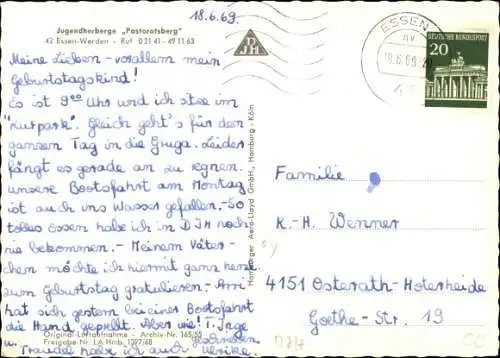 18.6.69.
Jugendherberge „Pastoratsberg"
43 Essen-Werden - Ruf 0 21 41 - 49 11 63
Meine Lieben - vorallem mein
Geburtstagskind!
Es ist 9⁰⁰ Uhr und ich sitze im
"Kurpark". Gleich geht's für den
ganzen Tag in die Gruga. Leider
fängt es gerade an zu regnen.
unsere Bootsfahrt am Montag
ist auch ins Wasser gefallen.- So
tolles Essen habe ich in DJH noch
nie bekommen.- Meinem Väter-
chen möchte ich hiermit ganz
zum Geburtstag gratulieren.-
hat sich gestern bei einer Bootsfahrt
die Hand geprellt. Aber wie! T. Inge
u. Traudel habe ich auch geschrieben
Ulrike.
Original-Luftaufnahme - Archiv-Nr. 165/55
Freigabe Nr. LA Hamb. 1397/68
DJH
Hamburger Aero-Lloyd GmbH., Hamburg - Köln
ESSEN
18.6.69
DEUTSCHE BUNDESPOST
20
Familie
K.-H. Wenner
4151 Osterath-Hoterheide
Goethe-Str. 19